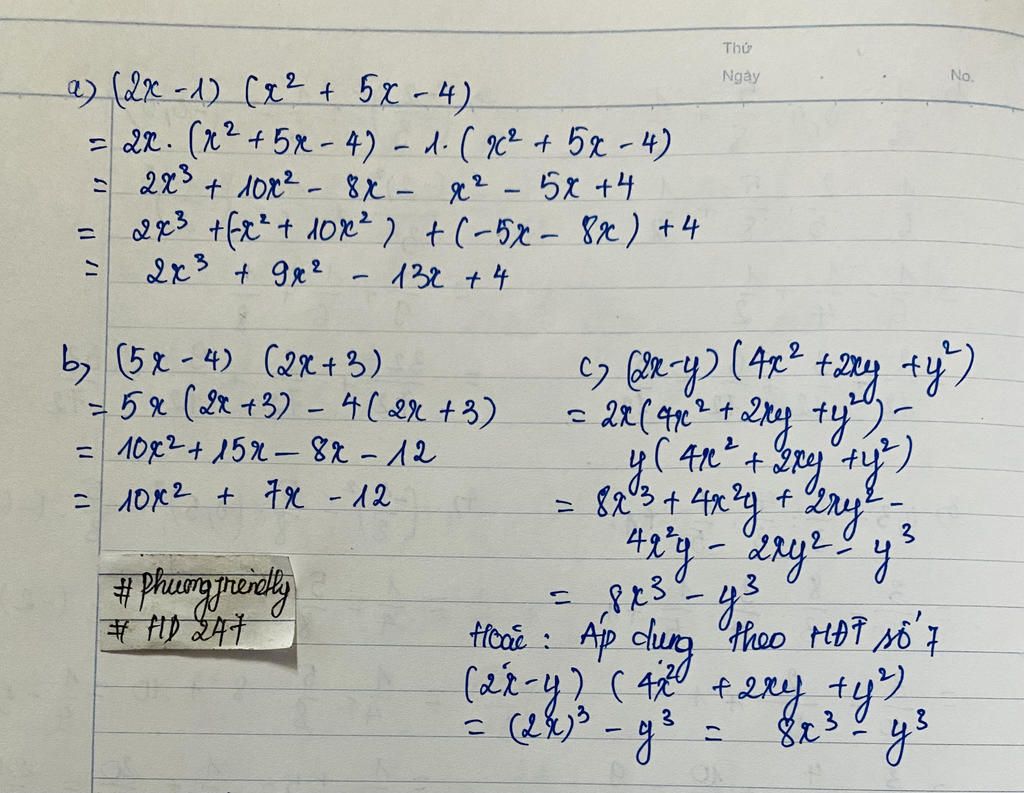 Thứ
Ngày
No.
a) (2x - 1) (x² + 5x - 4)
= 2x. (x² + 5x - 4) - 1. (x² + 5x - 4)
= 2x³ + 10x² - 8x - x² - 5x + 4
= 2x³ + (-x² + 10x²) + (-5x - 8x) + 4
= 2x³ + 9x² - 13x + 4
b) (5x - 4) (2x + 3)
= 5x (2x + 3) - 4 (2x + 3)
= 10x² + 15x - 8x - 12
= 10x² + 7x - 12
# phuongfriendly
# HD 247
c) (2x - y) (4x² + 2xy + y²)
= 2x (4x² + 2xy + y²) -
y (4x² + 2xy + y²)
= 8x³ + 4x²y + 2xy² -
4x²y - 2xy² - y³
= 8x³ - y³
Hoặc : Áp dụng theo HĐT số 7
(2x - y) (4x² + 2xy + y²)
= (2x)³ - y³ = 8x³ - y³